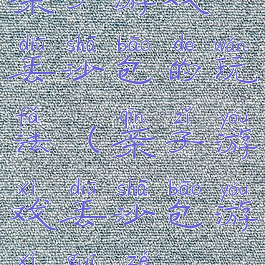 diū shā bāo de wán
丢沙包的玩
fǎ qīn zǐ yóu
法（亲子游
xì diū shā bāo yóu
戏丢沙包游